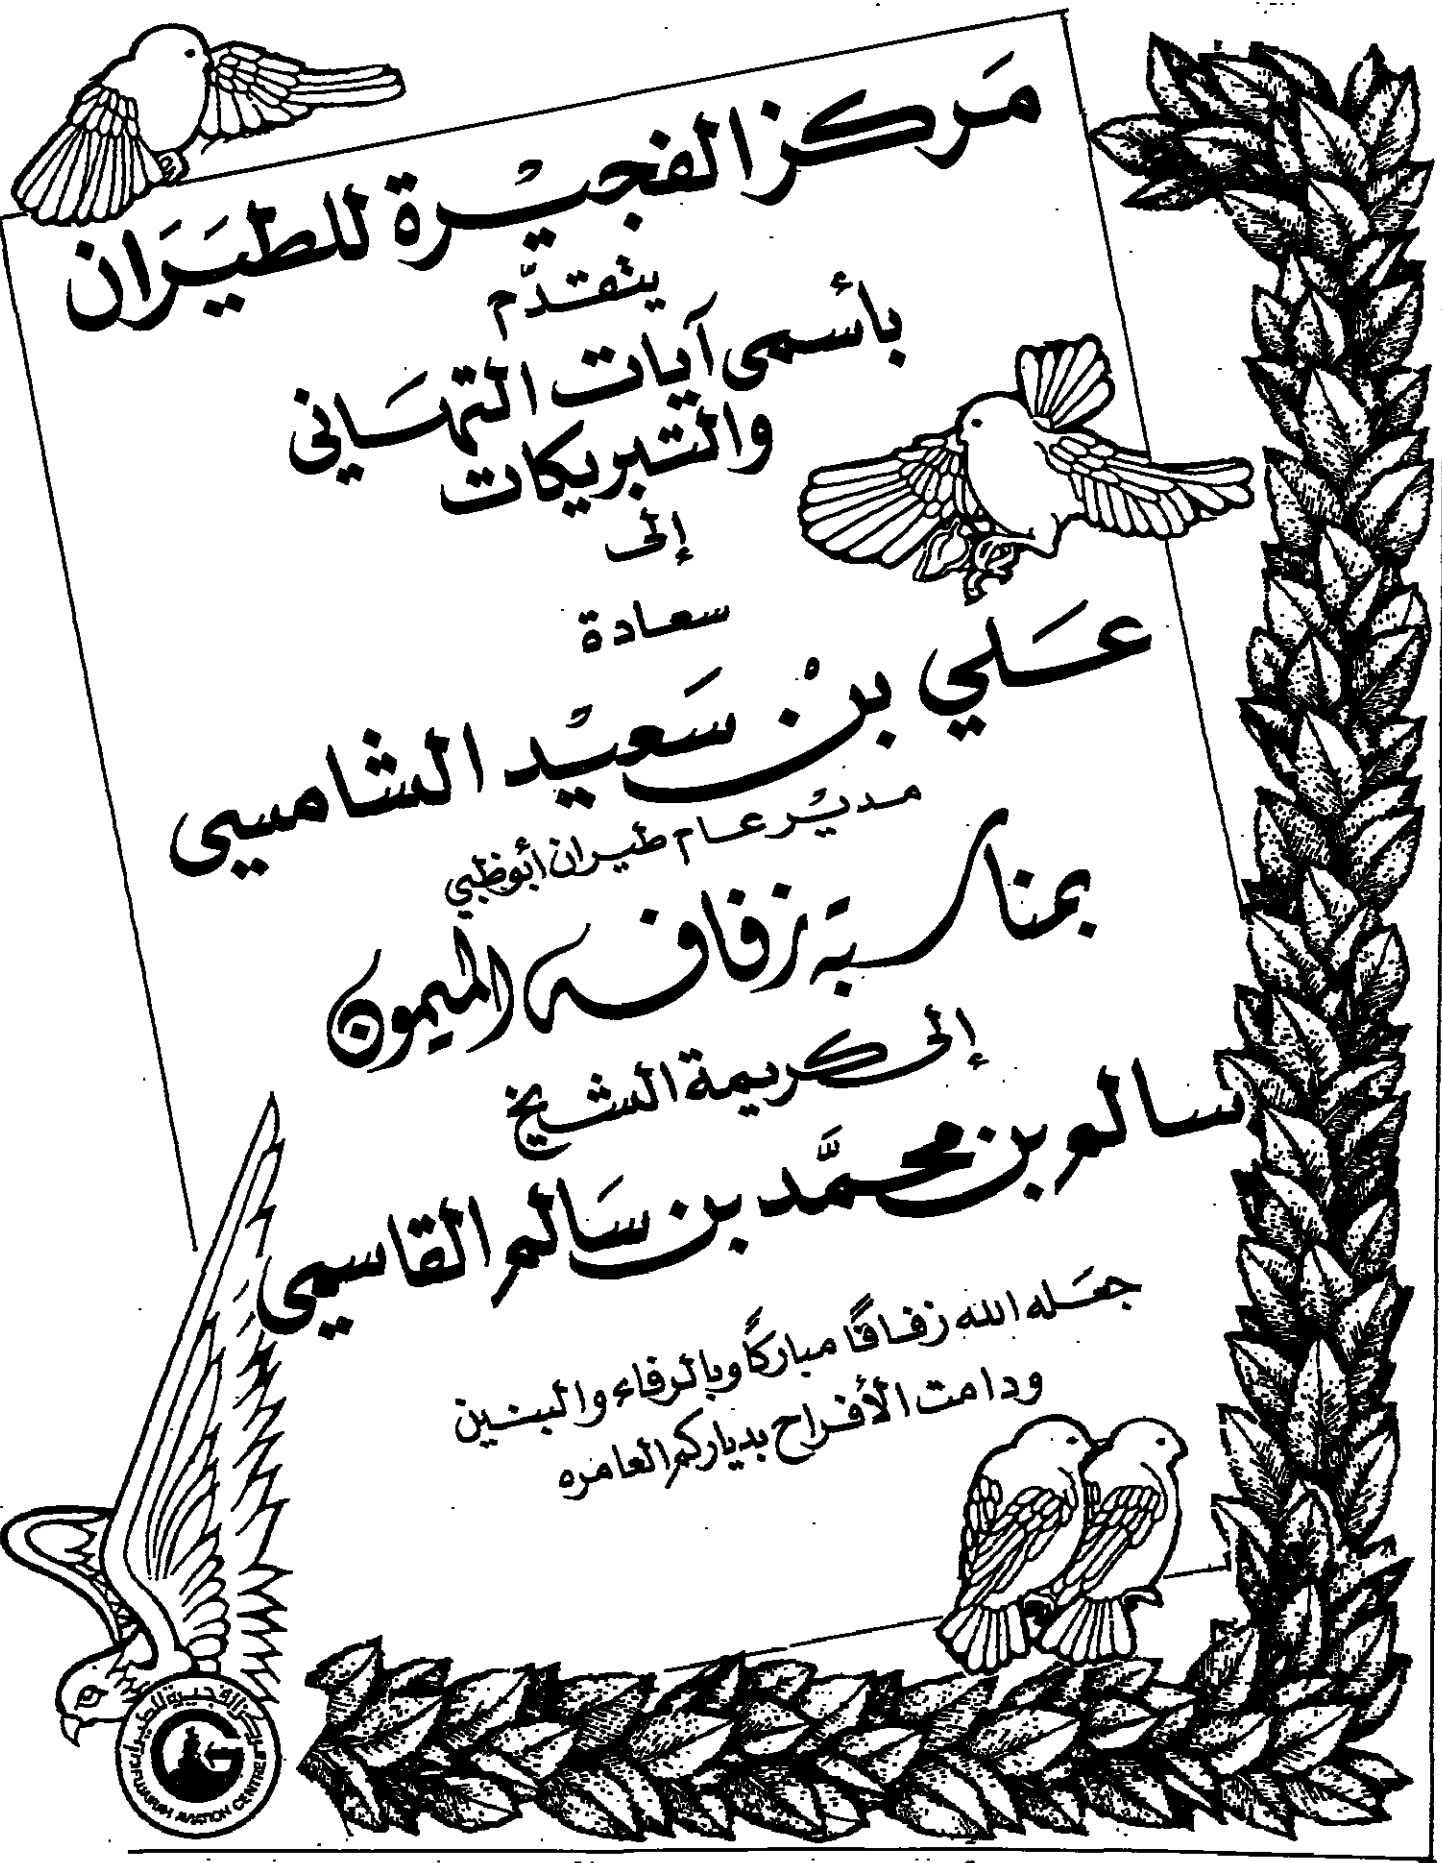 مَركز الفجيْرة للطيَرَان
يتقدّم
بأسمى آيات التهَاني
والتبريكات
إلى
سعادة
عَلي بنْ سَعيْد الشامسي
مديْر عام طيران أبوظبي
بمناسبة زفافه الميمون
إلى كريمة الشيخ
سالم بن محمَّد بن سَالم القاسمي
جعَله الله زفافًا مباركًا وبالرفاء والبنين
ودامت الأفراح بدياركم العامره
مركز الفجيرة للطيران
FUJAIRAH AVIATION CENTRE